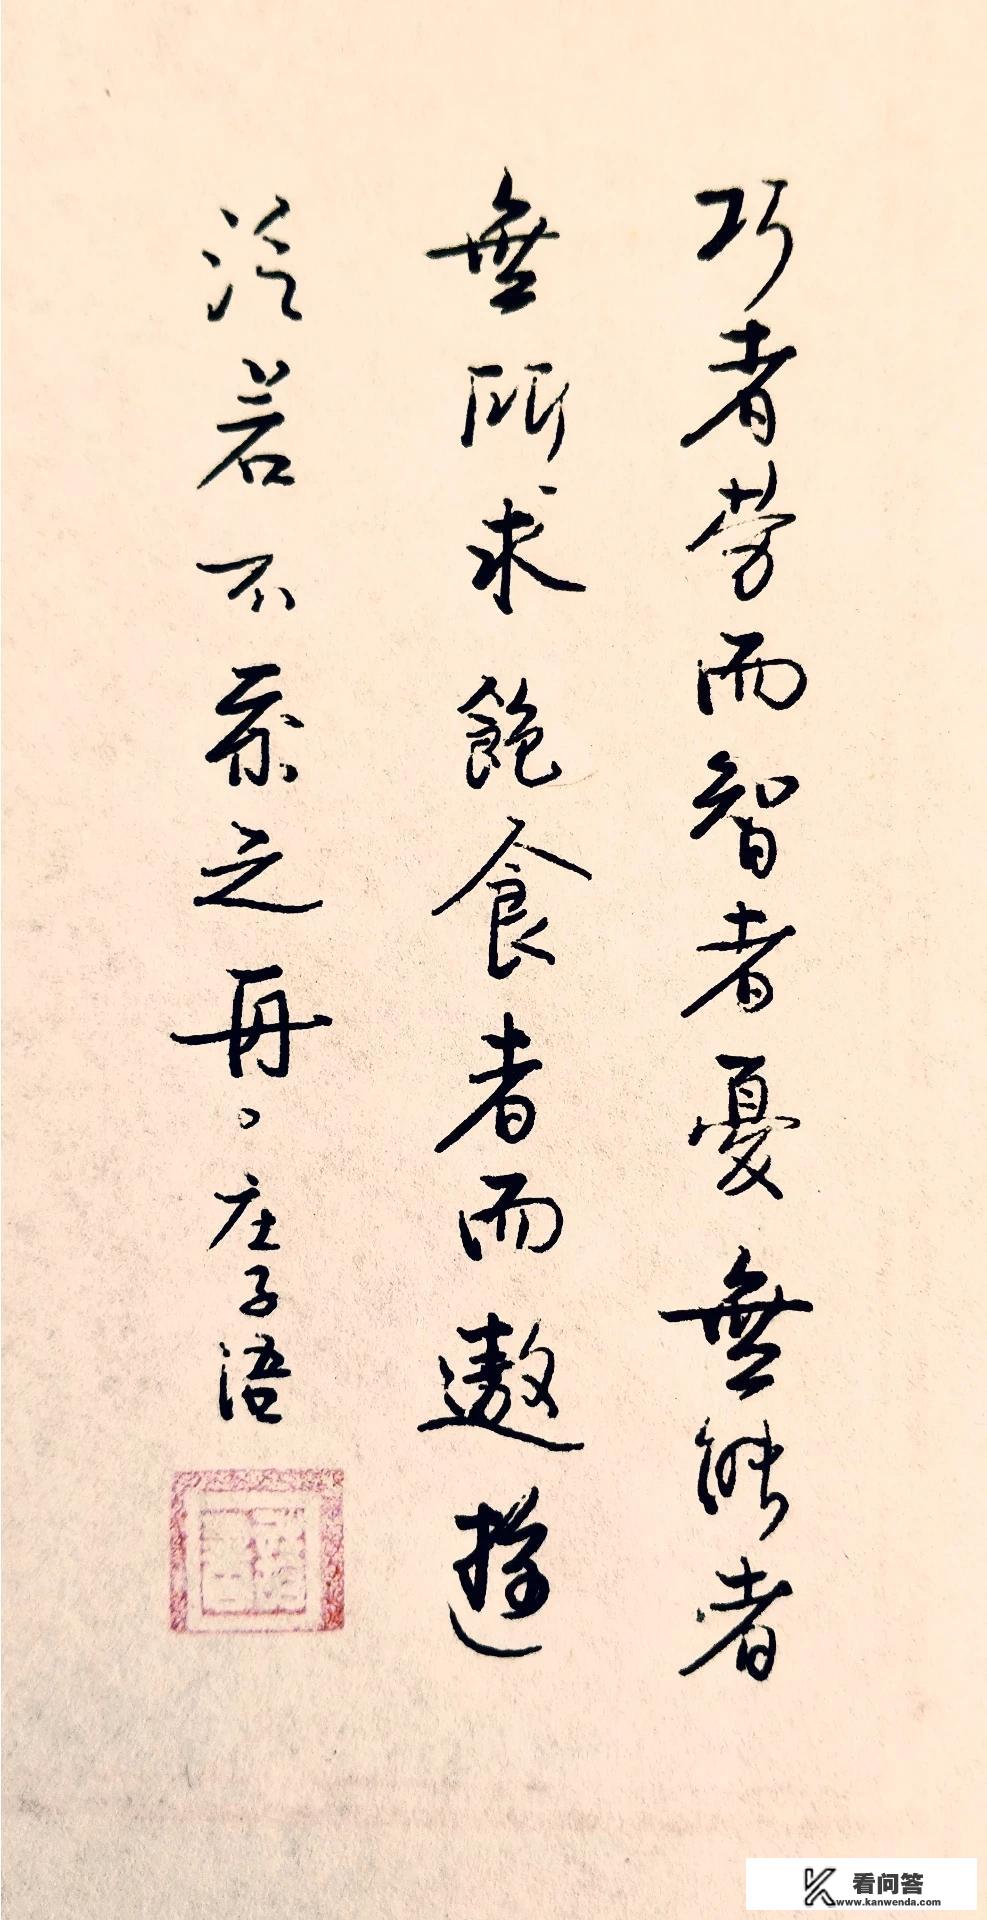 巧者劳而智者憂無能者
無所求飽食者而遨遊
泛若不系之舟。庄子语
看问答
www.kanwenda.com